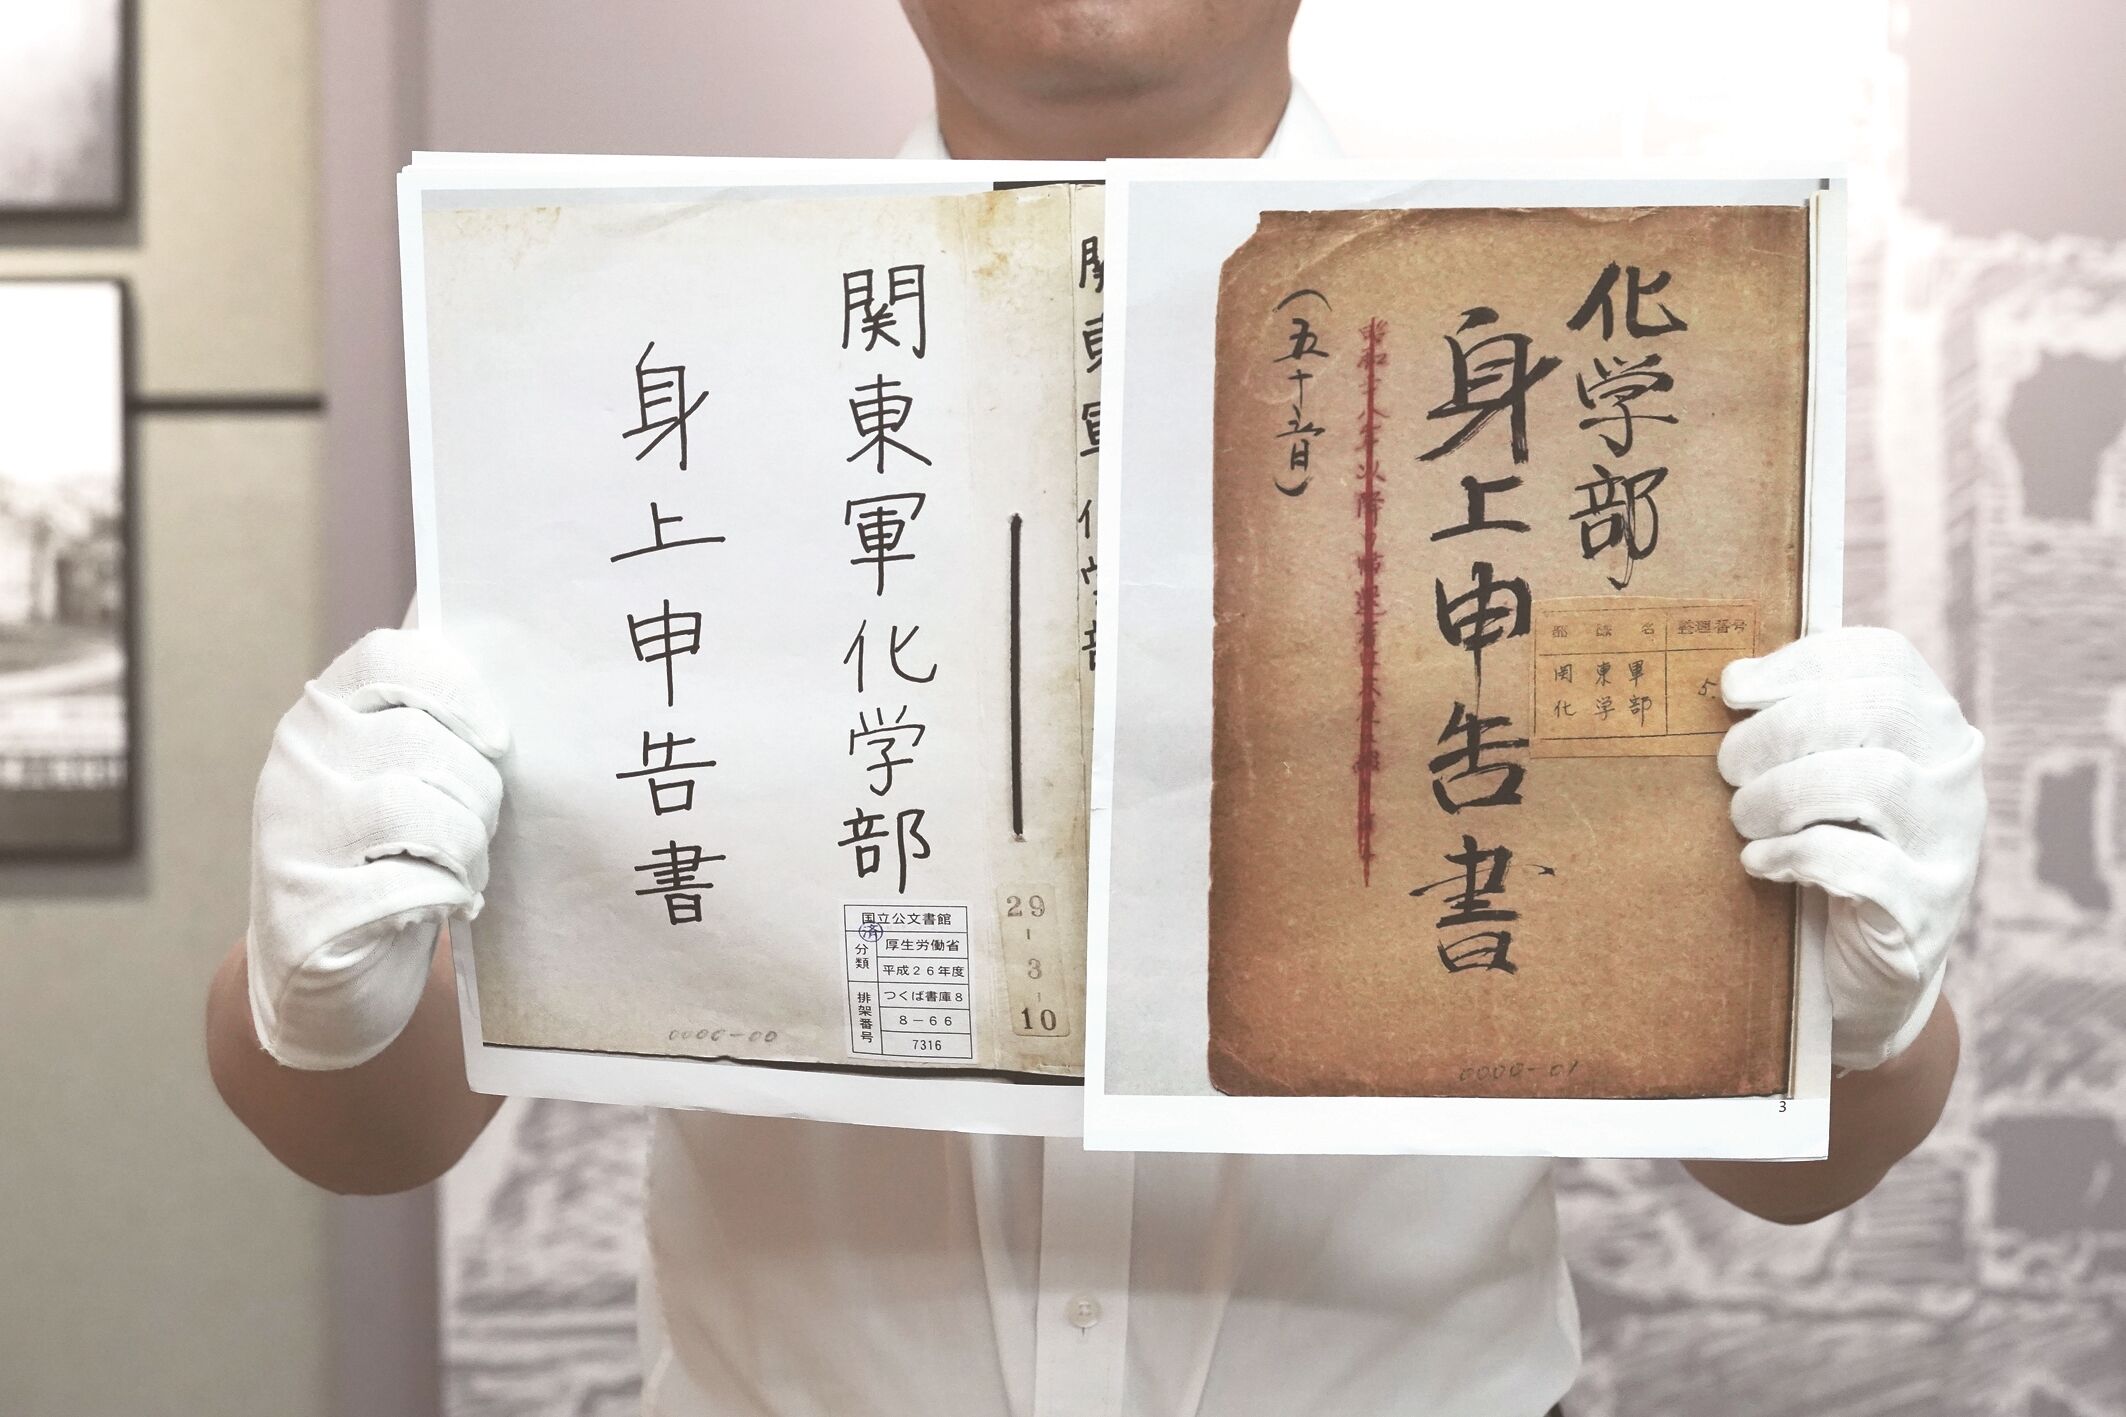 関東軍化学部
身上申告書
国立公文書館
済
分類
厚生労働省
平成26年度
つくば書庫8
排架番号
8-66
7316
29
3
10
0000-00
化学部
身上申告書
部隊名
整理番号
関東軍
化学部
5.
0000-01
3